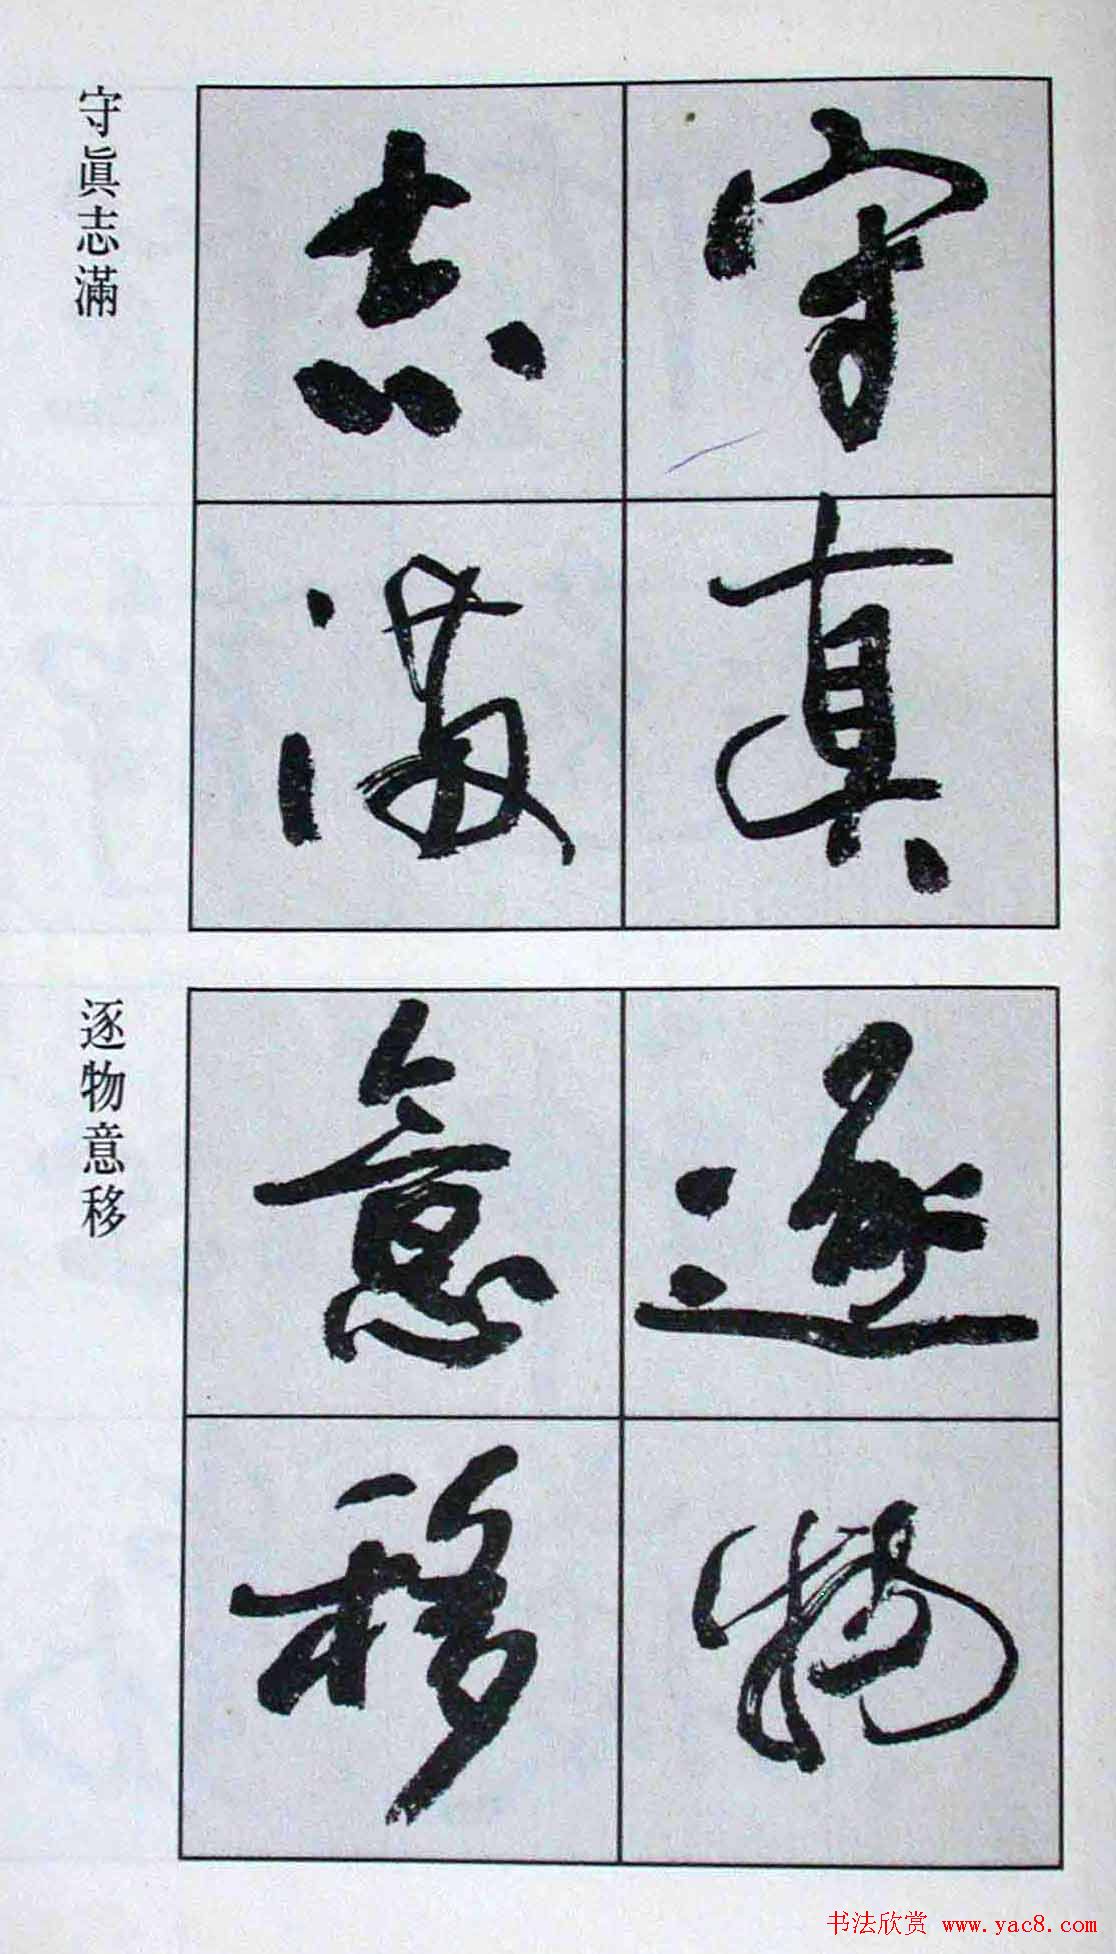 守真
志滿
守眞志滿
逐物
意移
逐物意移
书法欣赏 www.yac8.com